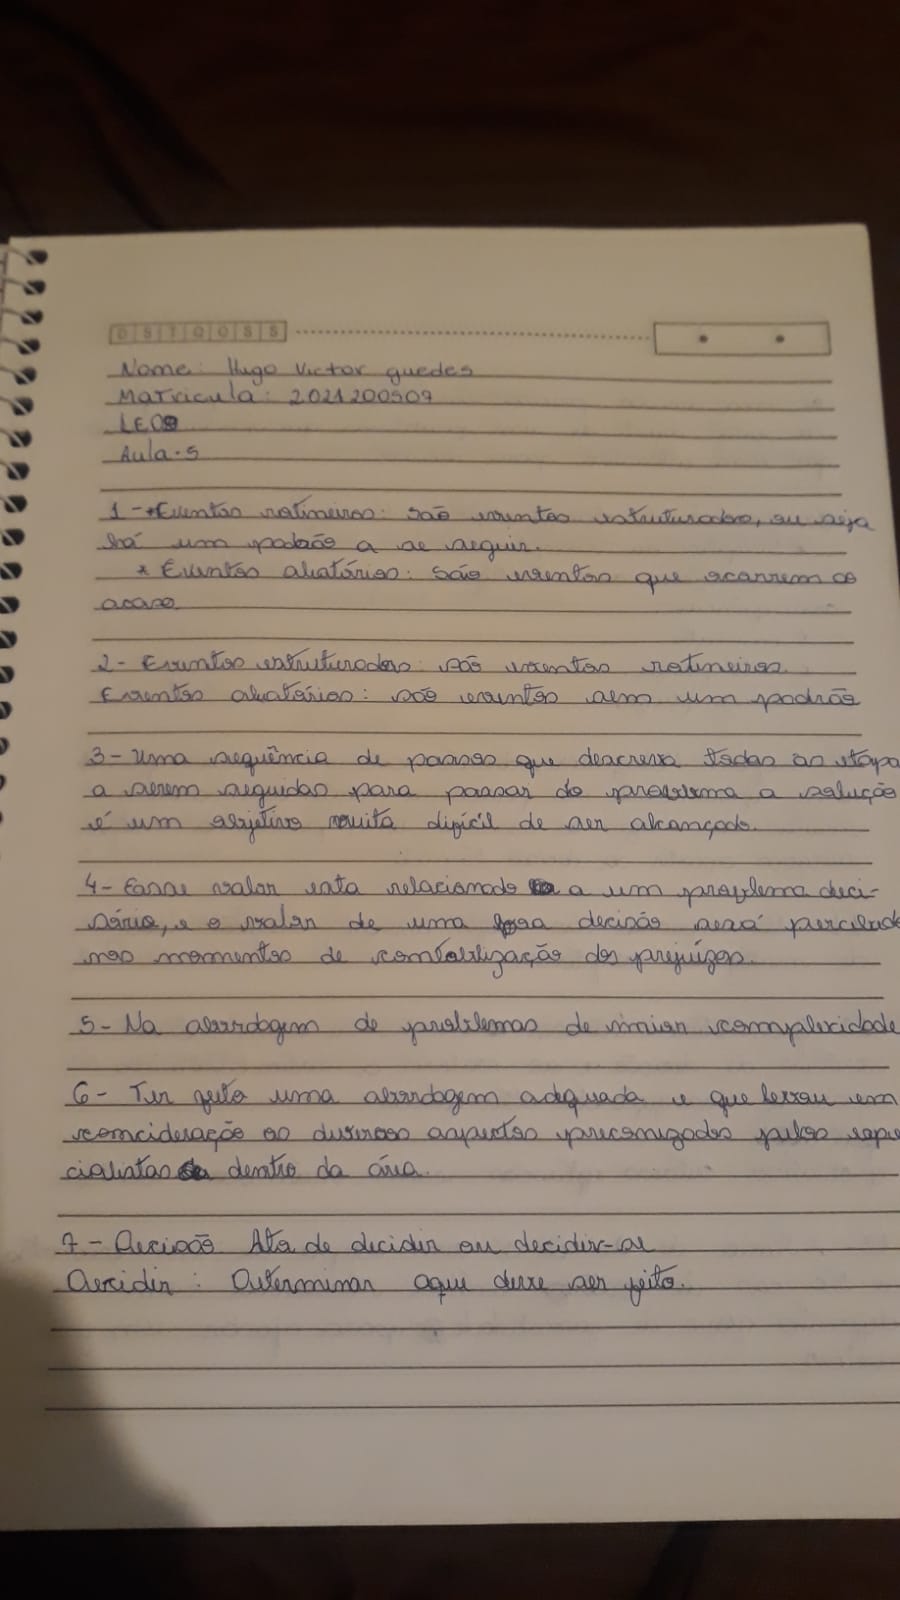 D S T Q Q S S
Nome: Hugo Victor guedes
Matricula: 2021200509
LEO
Aula-5
1-*Eventos rotineiros: São eventos estruturados, ou seja
há um padrão a se seguir.
* Eventos aleatórios: São eventos que ocorrem ao
acaso.
2- Eventos estruturados: são eventos rotineiros.
Eventos aleatórios: são eventos sem um padrão
3- Uma sequência de passos que descreva todas as etapa
a serem seguidas para passar do problema a solução
é um objetivo muito difícil de ser alcançado.
4- Esse valor esta relacionado a um problema deci-
sório, e o valor de uma boa decisão será percebid
nos momentos de contabilização dos prejuízos.
5- Na abordagem de problemas de maior complexidade
6- Ter feito uma abordagem adequada e que levou em
consideração os diversos aspectos preconizados pelos espe
cialistas dentro da área.
7- Decisão Ato de decidir ou decidir-se
Decidir: Determinar oque deve ser feito.